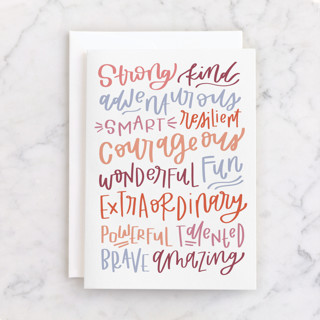 Strong kind
adventurous
SMART resilient
courageous
WONDERFUL FUN
EXTRAORDINARY
POWERFUL TALENTED
BRAVE amazing